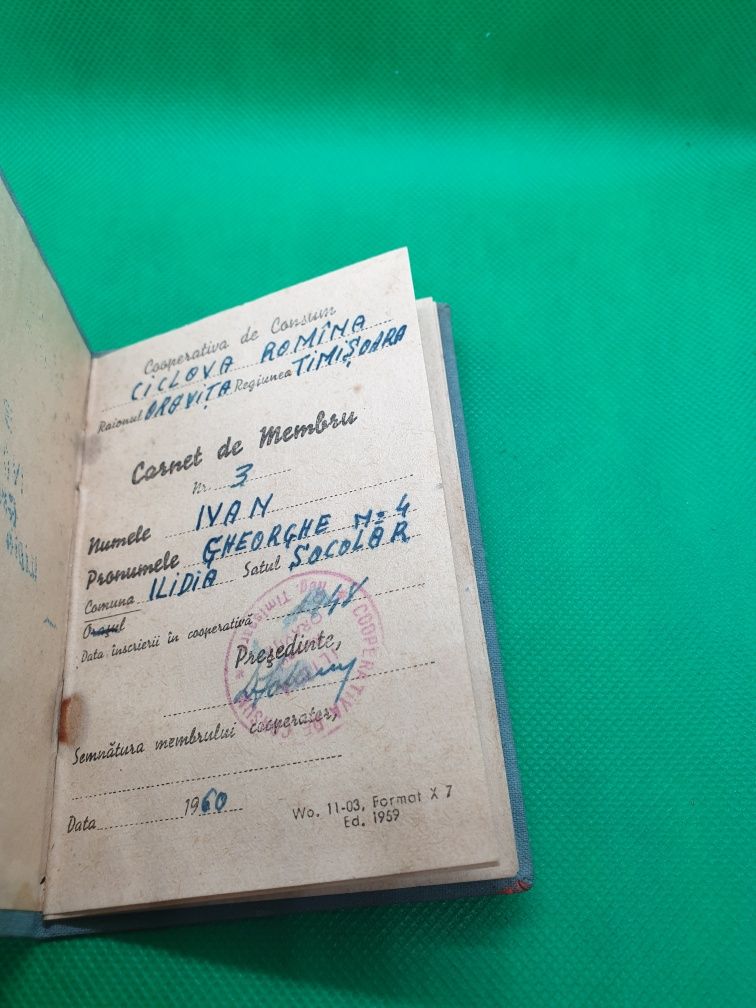 Cooperativa de Consum
CICLOVA ROMÎNA
Raionul ORAVIȚA Regiunea TIMIȘOARA
Carnet de Membru
Nr. 3
Numele IVAN
Pronumele GHEORGHE N=4
Comuna ILIDIA Satul SOCOLAR
Orașul
Data înscrierii în cooperativă 1948
Președinte,
COOPERATIVA DE CONSUM
Reg. Timișoara
Semnătura membrului cooperator,
Data 1960
Wo. 11-03, Format X 7
Ed. 1959